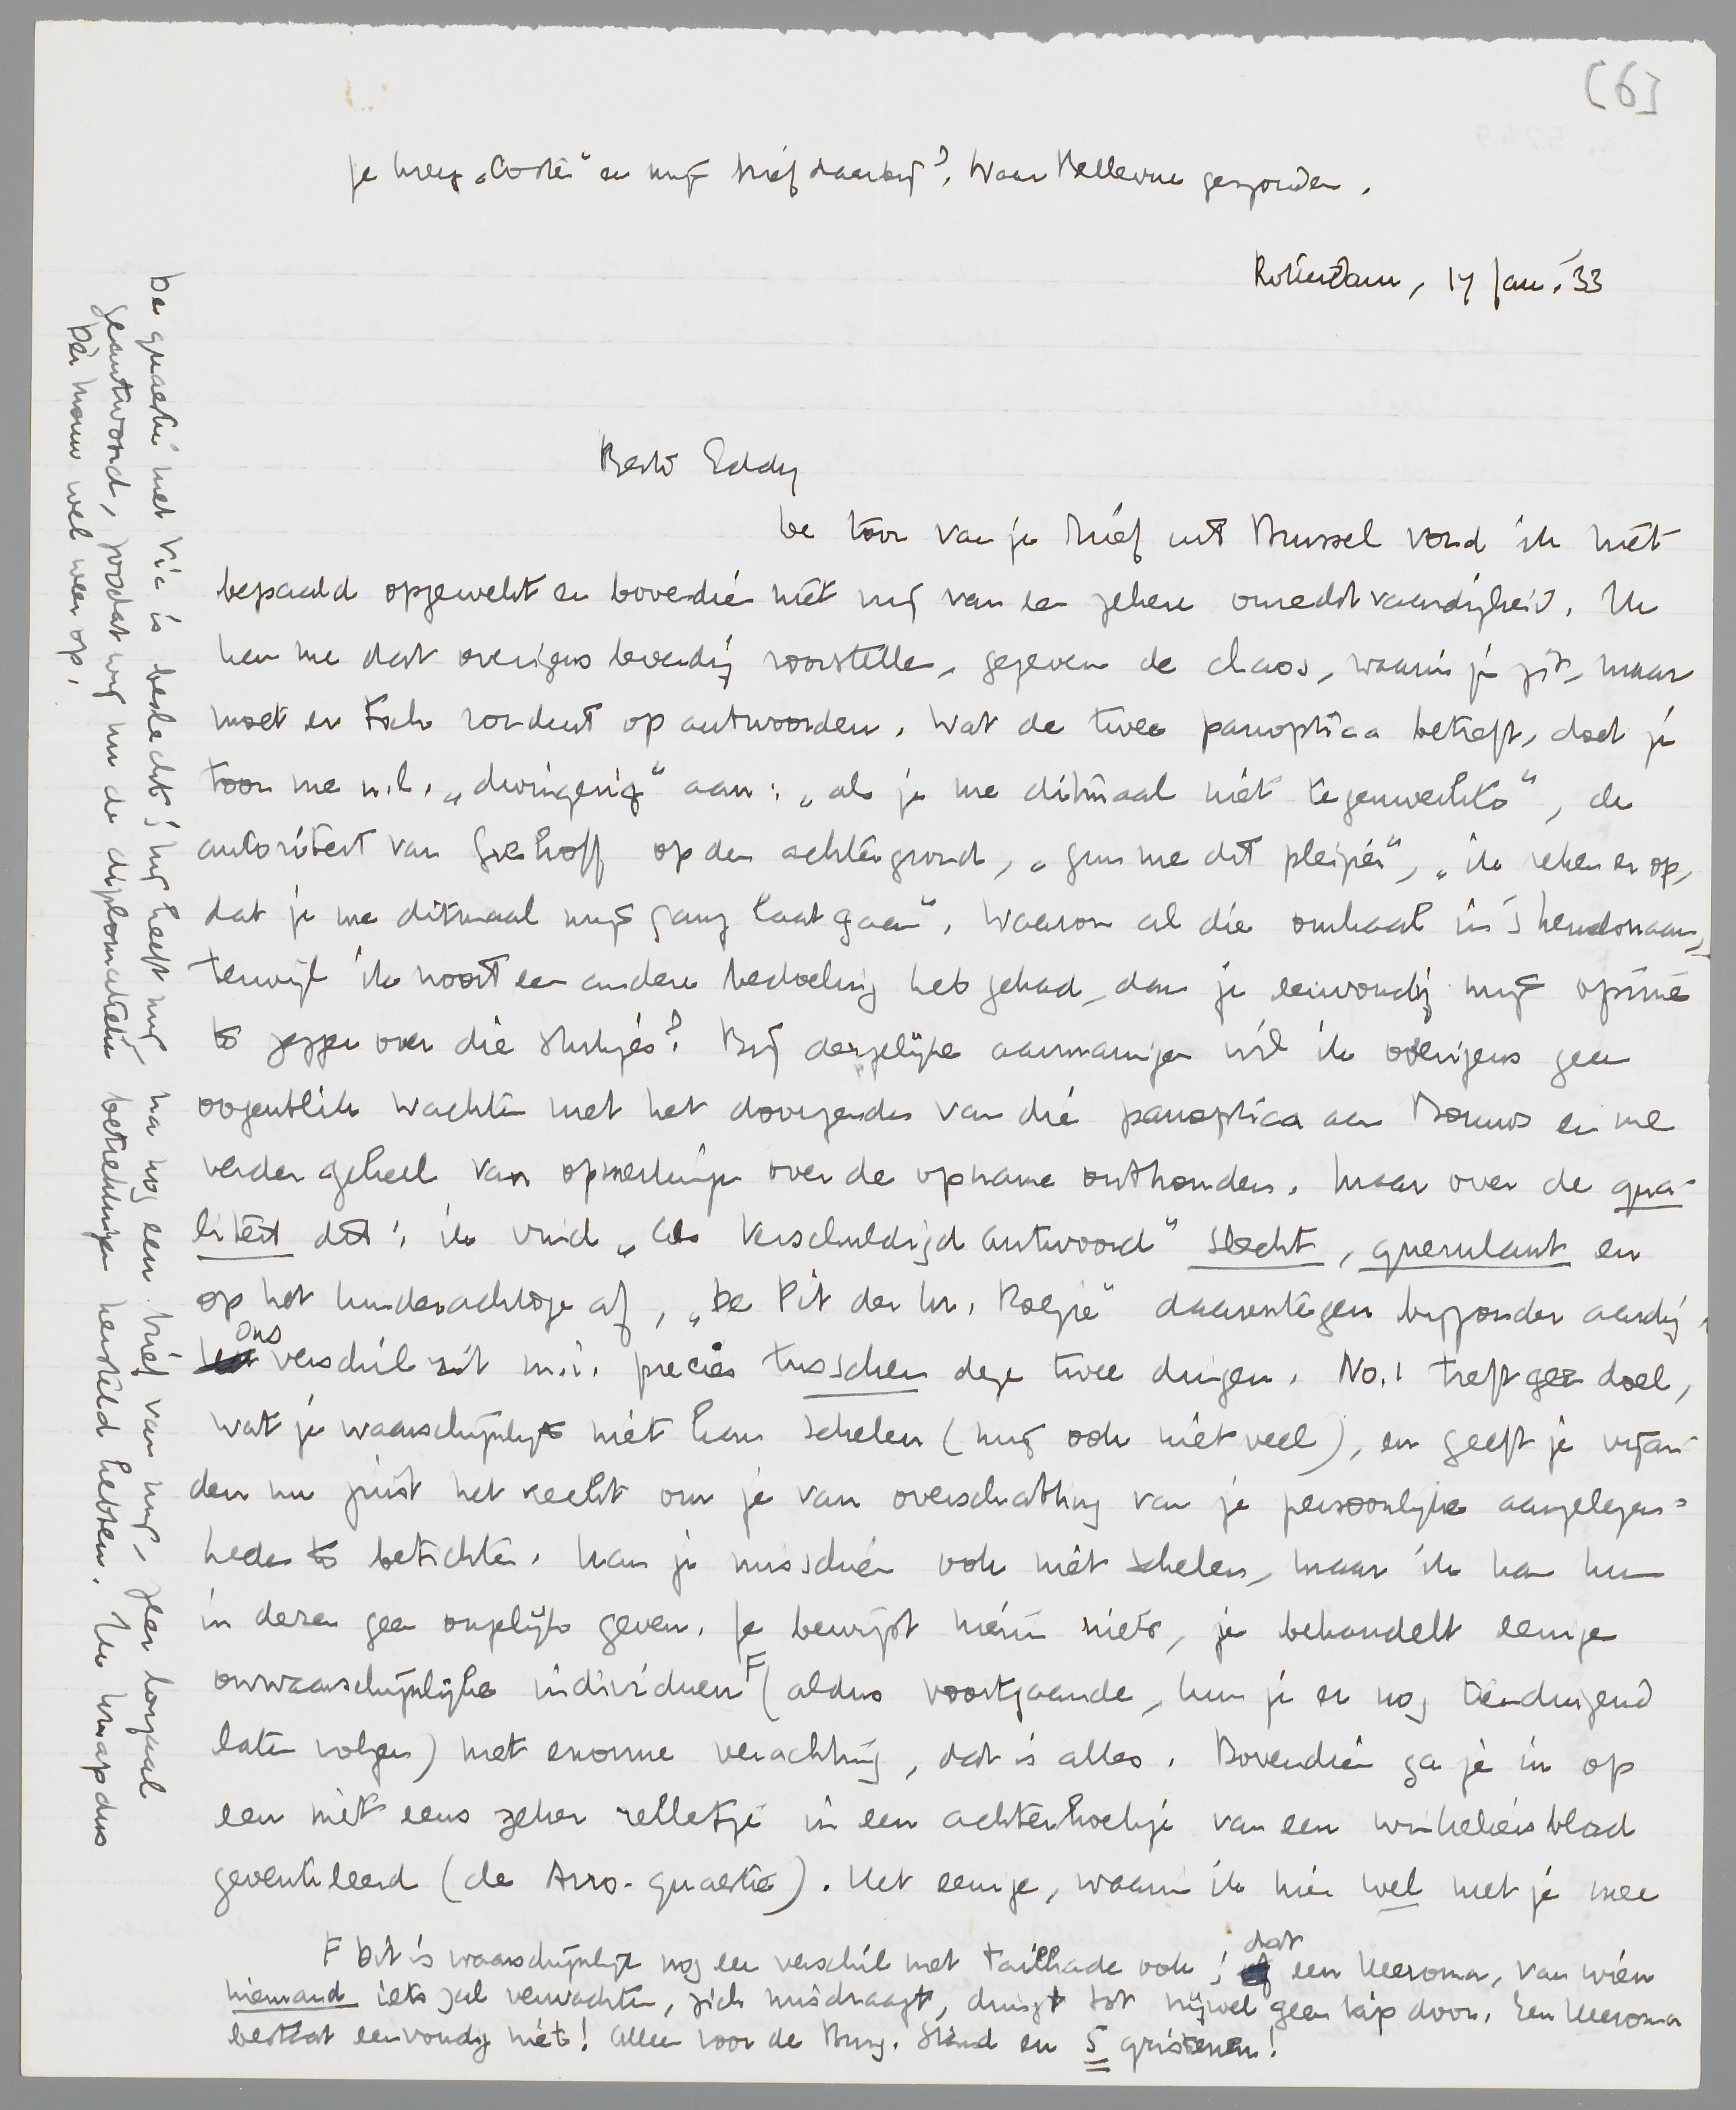 [6]
Je kreeg „Coster" en mijn brief daarbij? Naar Bellevue gezonden.
Rotterdam, 17 Jan. '33
Beste Eddy
De toon van je brief uit Brussel vond ik niet
bepaald opgewekt en bovendien niet vrij van een zekere onrechtvaardigheid. Ik
kan me dat overigens levendig voorstellen, gegeven de chaos, waarin je zit, maar
moet er toch ronduit op antwoorden. Wat de twee panoptica betreft, doet je
toon me n.l. „dwingerig" aan: „als je me ditmaal niet tegenwerkte", de
autoriteit van Greshoff op den achtergrond, „gun me dit pleizier", „ik reken er op,
dat je me ditmaal mijn gang laat gaan". Waarom al die omhaal in 's hemelsnaam,
terwijl ik nooit een andere bedoeling heb gehad, dan je eenvoudig mijn opinie
te zeggen over die stukjes? Bij dergelijke aanmaningen wil ik overigens geen
oogenblik wachten met het doorzenden van die panoptica aan Bouws en me
verder geheel van opmerkingen over de opname onthouden. Maar over de qua-
liteit dit: ik vind „Als Verschuldigd Antwoord" slecht, querulant en
op het kinderachtige af, „De Pit der hr. Roegie" daarentegen bijzonder aardig.
Ons verschil zit m.i. precies tusschen deze twee dingen. No. 1 treft geen doel,
wat je waarschijnlijk niet kan schelen (mij ook niet veel), en geeft je vijan-
den nu juist het recht om je van overschatting van je persoonlijke aangelegen-
heden te betichten. Kan je misschien ook niet schelen, maar ik kan hun
in dezen geen ongelijk geven. Je bewijst hierin niets, je behandelt eenige
onwaarschijnlijke individuen F (aldus voortgaande, kun je er nog tienduizend
laten volgen) met enorme verachting, dat is alles. Bovendien ga je in op
een niet eens zeker relletje in een achterhoekje van een winkeliersblad
geventileerd (de Arro-quaestie). Het eenige, waarin ik hier wel met je mee
F Dit is waarschijnlijk nog een verschil met Tailhade ook; dat een Heeroma, van wien
niemand iets zal verwachten, zich misdraagt, dringt tot nijwel geen kip door. Een Heeroma
bestaat eenvoudig niet! Alleen voor de Burg. Stand en 5 grisenen!
De quaestie met Vic is beslecht; hij heeft mij, na nog een brief van mij, zeer loyaal
geantwoord, zoodat wij nu de diplomatieke betrekkingen hersteld hebben. Ik knap dus
dèr houw wel weer op.